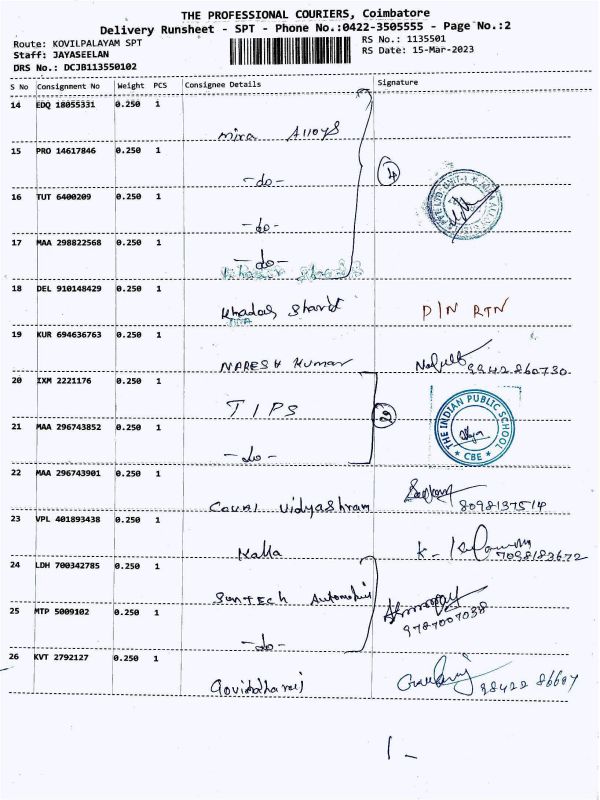 THE PROFESSIONAL COURIERS, Coimbatore
Delivery Runsheet - SPT - Phone No.:0422-3505555 - Page No.:2
Route: KOVILPALAYAM SPT
RS No.: 1135501
Staff: JAYASEELAN
RS Date: 15-Mar-2023
DRS No.: DCJB113550102
S No Consignment No Weight PCS Consignee Details Signature
14 EDQ 18055331 0.250 1
Mira Alloys
15 PRO 14617846 0.250 1
-do-
4
16 TUT 6400209 0.250 1
-do-
17 MAA 298822568 0.250 1
-do-
18 DEL 910148429 0.250 1
Khadas Sharid D/N RTN
19 KUR 694636763 0.250 1
NARESH Kumar 9842860730
20 IXM 2221176 0.250 1
TIPS
THE INDIAN PUBLIC SCHOOL
* CBE *
21 MAA 296743852 0.250 1
-do-
22 MAA 296743901 0.250 1
Vidyashram 8098137514
23 VPL 401893438 0.250 1
Kalla 7098183672
24 LDH 700342785 0.250 1
Suntech
25 MTP 5009102 0.250 1
9787007038
-do-
26 KVT 2792127 0.250 1
Govindharaj 98422 86607
1 -